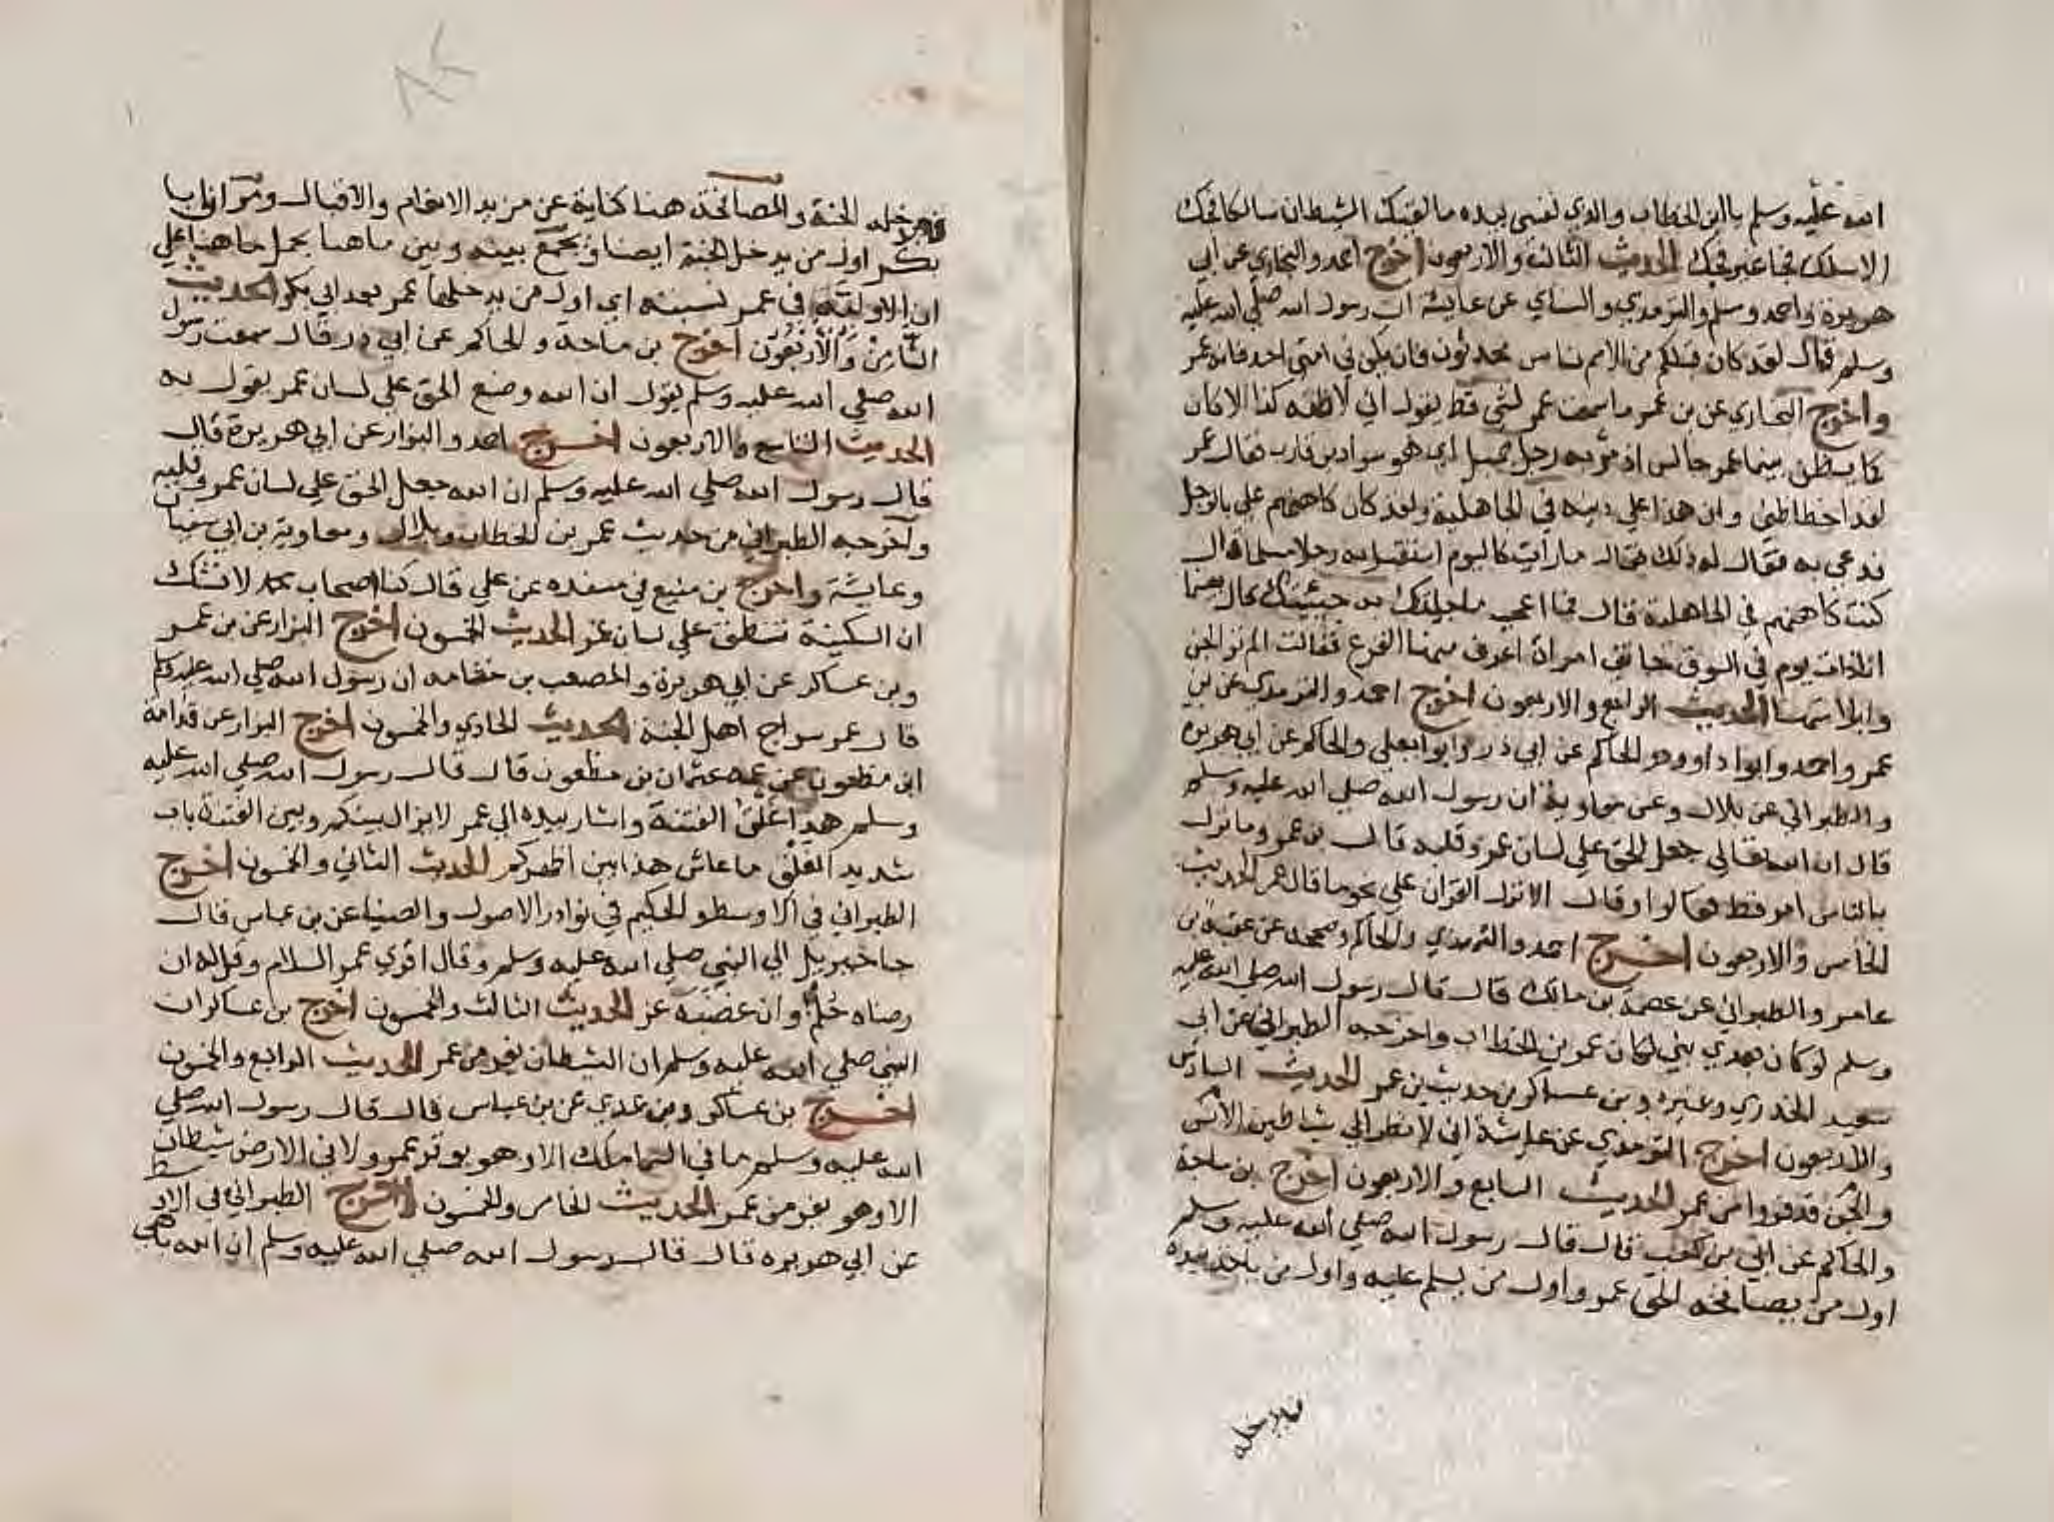 الله عليه وسلم يا ابن الخطاب والذي نفسي بيده ما لقيك الشيطان سالكا فجا
الا سلك فجا غير فجك الحديث الثالث والاربعون اخرج احمد والبخاري عن ابي
هريرة واحمد ومسلم والترمذي والنساي عن عايشة ان رسول الله صلى الله عليه
وسلم قال لقد كان قبلكم من الامم ناس محدثون فان يكن في امتي احد فانه عمر
واخرج البخاري عن بن عمر ما سمعت عمر لشي قط يقول اني لاظنه كذا الا كان
كما يظن بينما عمر جالس اذ مر به رجل جميل اي هو سواد بن قارب فقال عمر
لقد اخطا ظني وان هذا علي دينه في الجاهلية ولقد كان كاهنهم علي بالرجل
فدعي به فقال له ذلك فقال ما رايت كاليوم استقبل به رجلا مسلما قال
كنت كاهنهم في الجاهلية قال فما اعجب ما جاتك به جنيتك قال بينما
انا ذات يوم في السوق جاتني امراة اعرف منها الفزع فقالت الم تر الجن
وابلاسها الحديث الرابع والاربعون اخرج احمد والترمذي عن بن
عمر واحمد وابوا داوود والحاكم عن ابي ذر وابوا يعلي والحاكم عن ابي هريرة
والطبراني عن بلال وعن معاوية ان رسول الله صلي الله عليه وسلم
قال ان الله تعالي جعل الحق علي لسان عمر وقلبه قال بن عمر وما نزل
بالناس امر قط فقالوا وقال الا نزل القران علي نحو ما قال عمر الحديث
الخامس والاربعون اخرج احمد والترمذي والحاكم وصححه عن عقبة بن
عامر والطبراني عن عصمة بن مالك قال قال رسول الله صلي الله عليه
وسلم لو كان بعدي نبي لكان عمر بن الخطاب واخرجه الطبراني عن ابي
سعيد الخدري وغيره وبن عساكر من حديث بن عمر الحديث السادس
والاربعون اخرج الترمذي عن عايشة اني لانظر الي شياطين الانس
والجن قد فروا من عمر الحديث السابع والاربعون اخرج بن ماجة
والحاكم عن ابي بن كعب قال قال رسول الله صلي الله عليه وسلم
اول من يصافحه الحق عمر واول من يسلم عليه واول من ياخذ بيده
فيدخله
فيدخله الجنة والمصافحة هنا كناية عن مزيد الانعام والاقبال ومر ان ابا
بكر اول من يدخل الجنة ايضا ويجمع بينه وبين ما هنا بحمل ما هنا علي
ان الاولية في عمر نسبية اي اول من يدخلها عمر بعد ابي بكر الحديث
الثامن والاربعون اخرج بن ماجة والحاكم عن ابي ذر قال سمعت رسول
الله صلي الله عليه وسلم يقول ان الله وضع الحق علي لسان عمر يقول به
الحديث التاسع والاربعون اخرج احمد والبزار عن ابي هريرة قال
قال رسول الله صلي الله عليه وسلم ان الله جعل الحق علي لسان عمر وقلبه
واخرجه الطبراني من حديث عمر بن الخطاب وبلال ومعاوية بن ابي سفيان
وعايشة واخرج بن منيع في مسنده عن علي قال كنا اصحاب محمد لا نشك
ان السكينة تنطق علي لسان عمر الحديث الخمسون اخرج البزار عن بن عمر
وبن عساكر عن ابي هريرة والمصعب بن جثامه ان رسول الله صلي الله عليه وسلم
قال عمر سراج اهل الجنة الحديث الحادي والخمسون اخرج البزار عن قدامة
ابن مظعون عن عمه عثمان بن مظعون قال قال رسول الله صلي الله عليه
وسلم هذا غلق الفتنة واشار بيده الي عمر لا يزال بينكم وبين الفتنة باب
شديد الغلق ما عاش هذا بين اظهركم الحديث الثاني والخمسون اخرج
الطبراني في الاوسط والحكيم في نوادر الاصول والضيا عن بن عباس قال
جا جبريل الي النبي صلي الله عليه وسلم وقال اقري عمر السلام وقل له ان
رضاه حكم وان غضبه عز الحديث الثالث والخمسون اخرج بن عساكر ان
النبي صلي الله عليه وسلم ان الشيطان يفر من عمر الحديث الرابع والخمسون
اخرج بن عساكر وبن عدي عن بن عباس قال قال رسول الله صلي
الله عليه وسلم ما في السما ملك الا وهو يوقر عمر ولا في الارض شيطان
الا وهو يفر من عمر الحديث الخامس والخمسون اخرج الطبراني في الاوسط
عن ابي هريرة قال قال رسول الله صلي الله عليه وسلم ان الله باهي